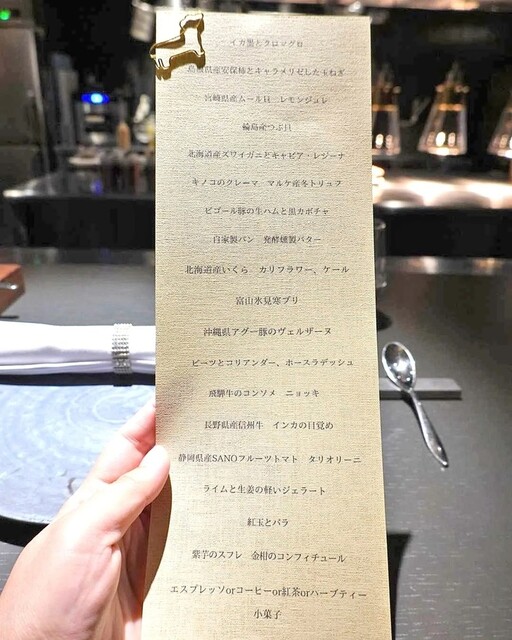 イカ墨とクロマグロ
島根県産安保柿とキャラメリゼした玉ねぎ
宮崎県産ムール貝　レモンジュレ
輪島産つぶ貝
北海道産ズワイガニとキャビア・レジーナ
キノコのクレーマ　マルケ産冬トリュフ
ビゴール豚の生ハムと黒カボチャ
自家製パン　発酵燻製バター
北海道産いくら　カリフラワー、ケール
富山氷見寒ブリ
沖縄県アグー豚のヴェルザーヌ
ビーツとコリアンダー、ホースラデッシュ
飛騨牛のコンソメ　ニョッキ
長野県産信州牛　インカの目覚め
静岡県産SANOフルーツトマト　タリオリーニ
ライムと生姜の軽いジェラート
紅玉とバラ
紫芋のスフレ　金柑のコンフィチュール
エスプレッソorコーヒーor紅茶orハーブティー
小菓子